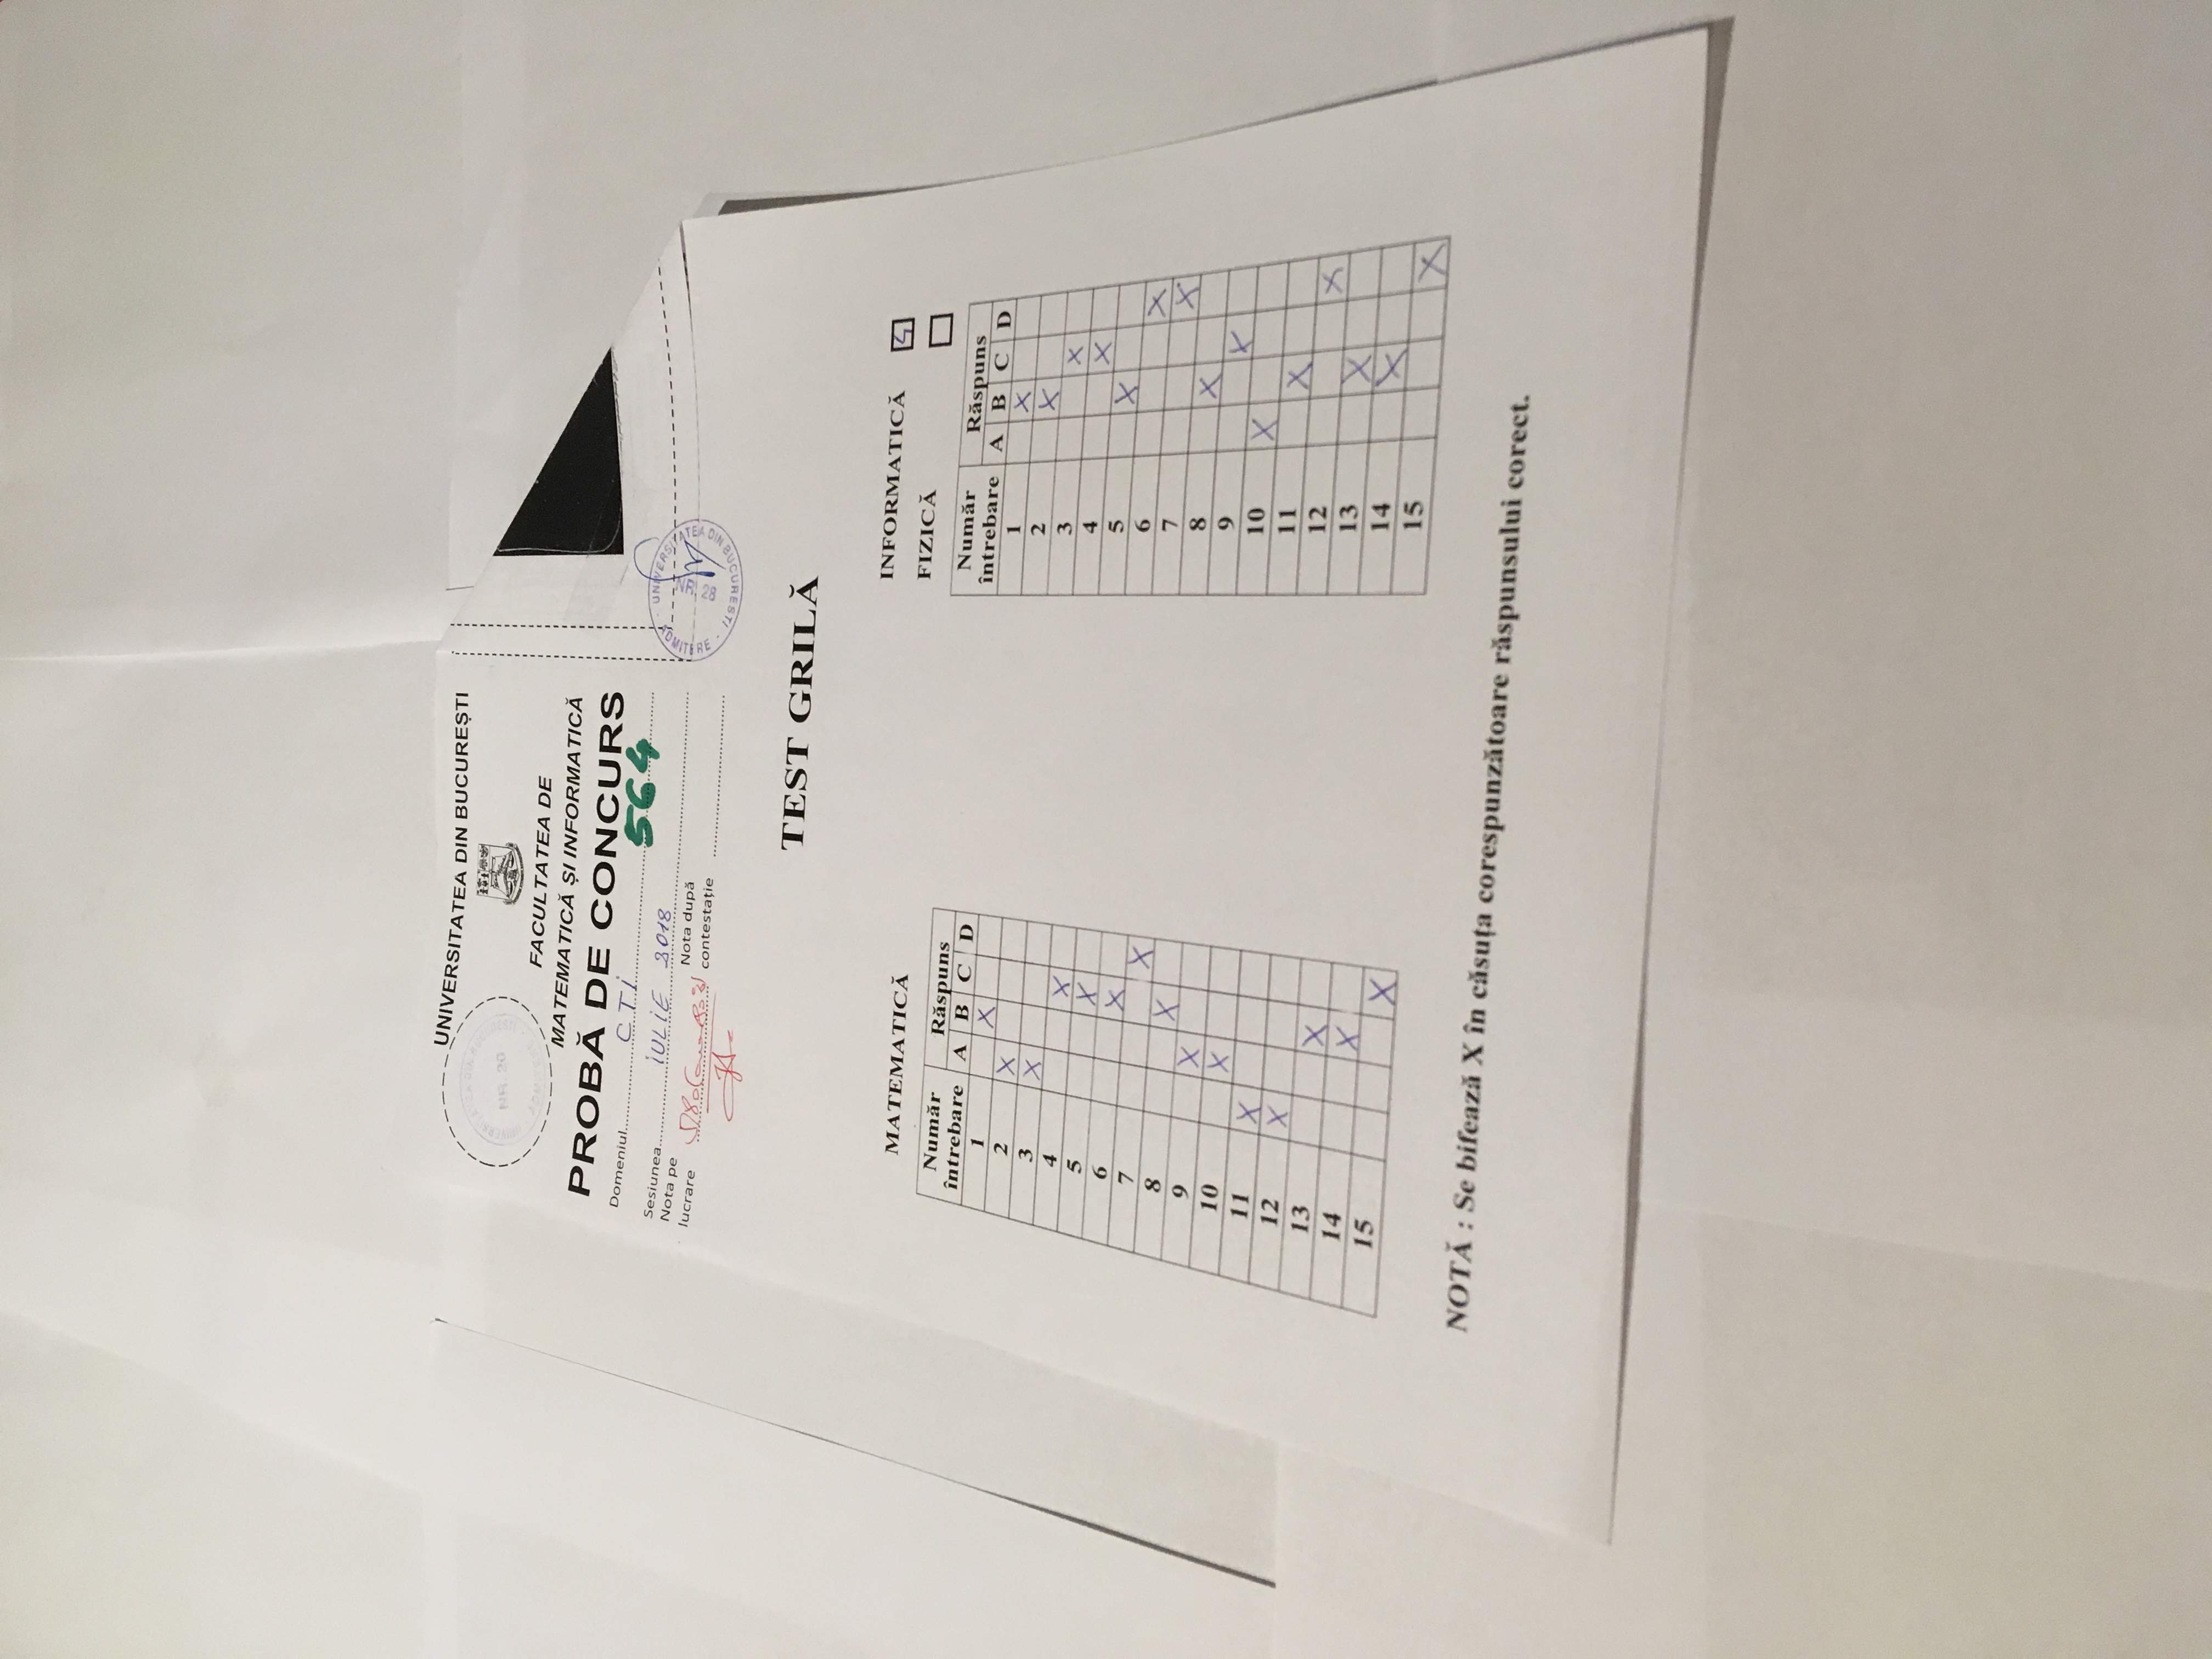 UNIVERSITATEA DIN BUCUREȘTI
NR. 20
FACULTATEA DE
MATEMATICĂ ȘI INFORMATICĂ
PROBĂ DE CONCURS
Domeniul CTI 564
Sesiunea IULIE 2018
Nota pe lucrare
Nota după contestație
UNIVERSITATEA DIN BUCURESTI · ADMITERE · NR. 28
TEST GRILĂ
MATEMATICĂ
Număr întrebare Răspuns
A B C D
1 X
2 X
3 X
4 X
5 X
6 X
7 X
8 X
9 X
10 X
11 X
12 X
13 X
14 X
15 X
INFORMATICĂ
FIZICĂ
Număr întrebare Răspuns
A B C D
1 X
2 X
3 X
4 X
5 X
6 X
7 X
8 X
9 X
10 X
11 X
12 X
13 X
14 X
15 X
NOTĂ : Se bifează X în căsuța corespunzătoare răspunsului corect.